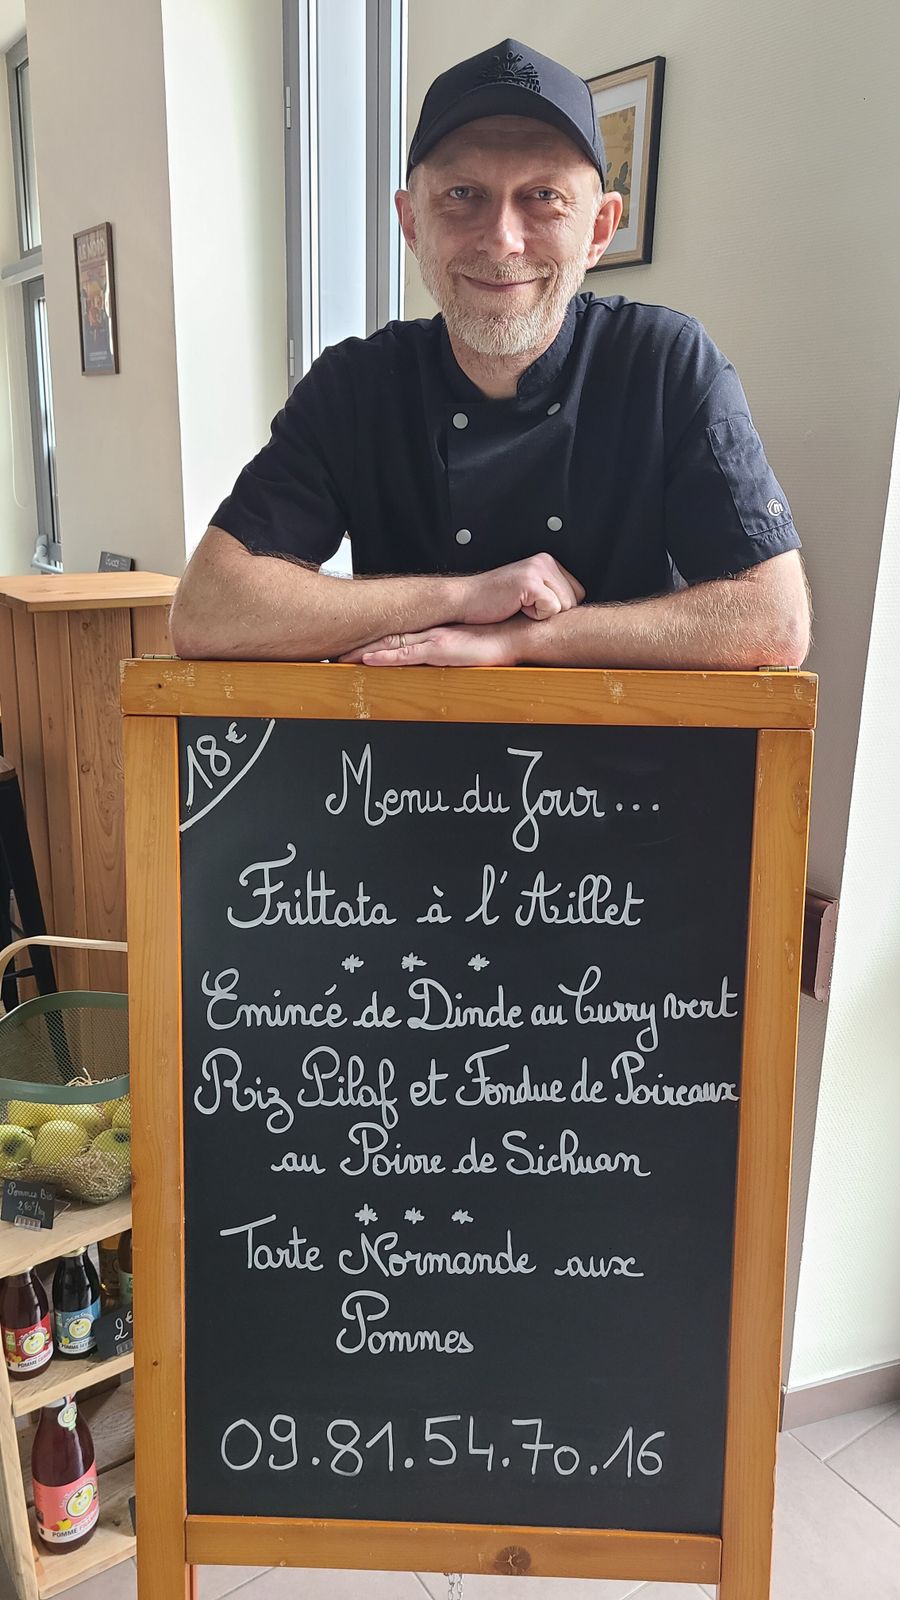 18€
Menu du Jour...
Frittata à l'Aillet
Emincé de Dinde au Curry vert
Riz Pilaf et Fondue de Poireaux
au Poivre de Sichuan
Tarte Normande aux
Pommes
09.81.54.70.16
Pommes Bio
2€
POMME
POMME
POMME